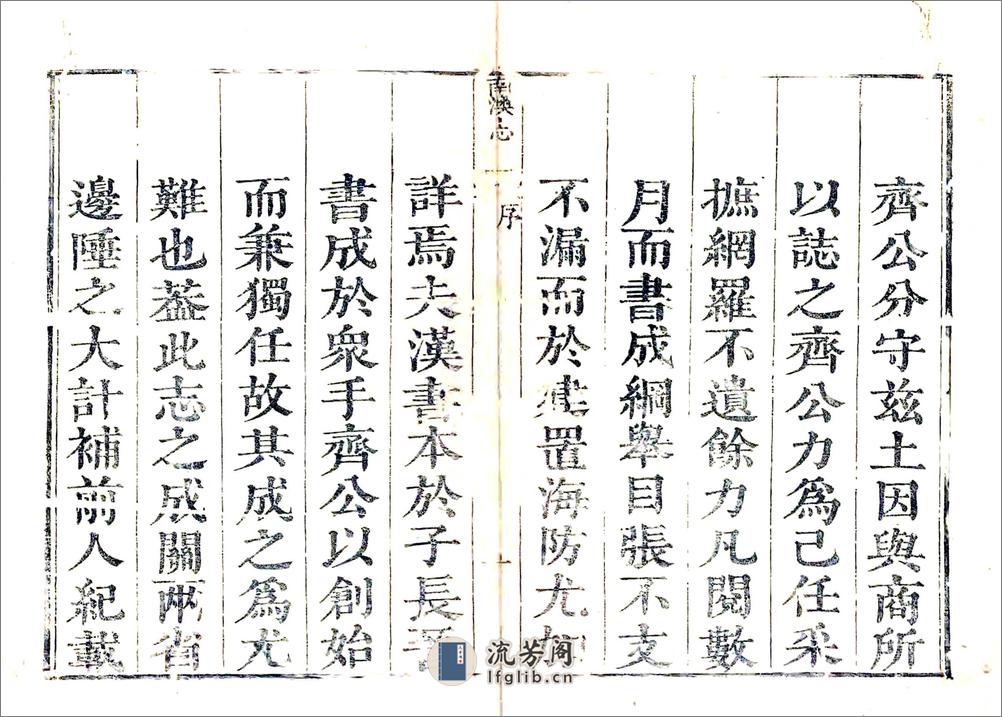 齊公分守玆土因與商所
以誌之齊公力爲己任采
摭網羅不遺餘力凡閱數
月而書成綱舉目張不支
不漏而於建置海防尤
南澳志
序
一
詳焉夫漢書本於子長
書成於衆手齊公以創始
而兼獨任故其成之爲尤
難也葢此志之成關兩省
邊陲之大計補前人紀載
流芳阁
lfglib.cn